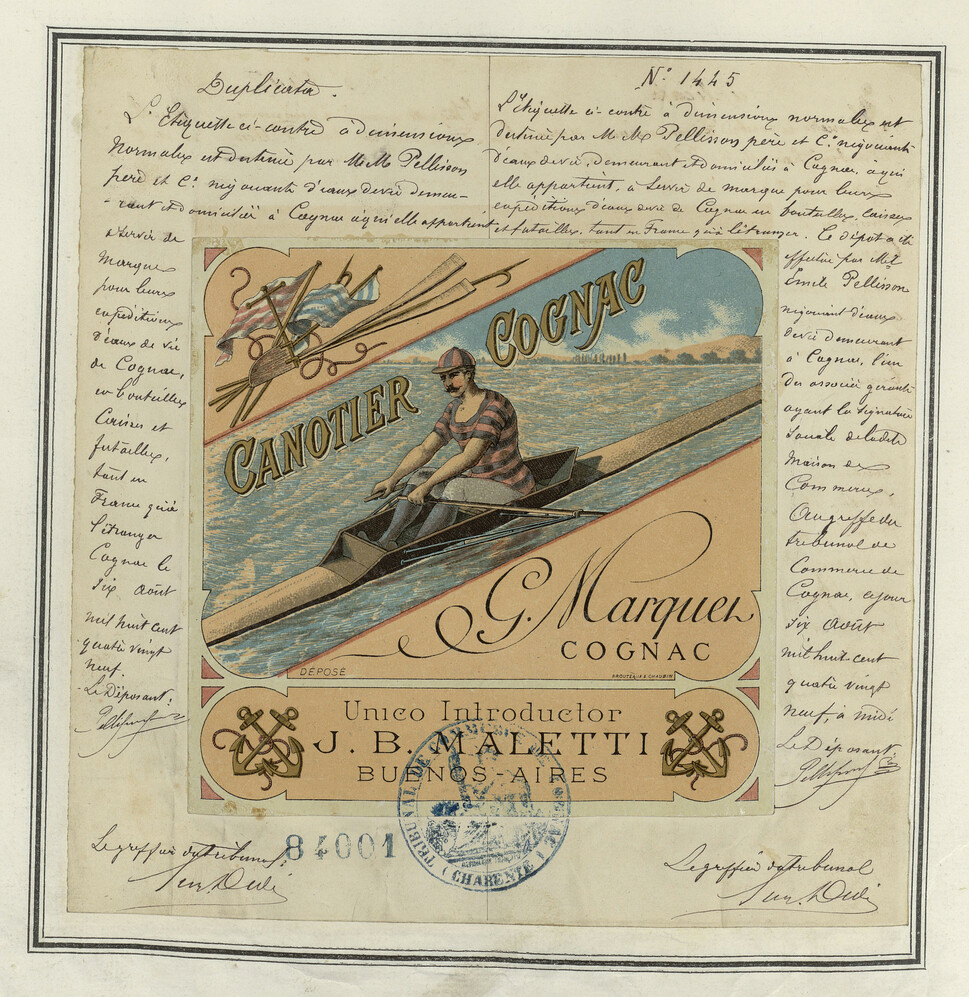 Duplicata.
L'Etiquette ci-contre à dimensions
normales est destinée par M.M. Pellisson
père et Cie. négociants d'eaux de vie demeu-
-rant et domiciliés à Cognac à qui elle appartient
à servir de
marque
pour leurs
expéditions
d'eaux de vie
de Cognac,
en bouteilles
Caisses et
futailles,
tant en
France qu'à
l'étranger
Cognac le
Six Août
mil huit cent
quatre vingt
neuf.
Le Déposant:
N° 1445
L'étiquette ci-contre à dimensions normales est
destinée par M.M. Pellisson père et Cie. négociants
d'eaux de vie, demeurant et domiciliés à Cognac, à qui
elle appartient, à servir de marque pour leurs
expéditions d'eaux de vie de Cognac en bouteilles, caisses
et futailles, tant en France qu'à l'étranger. Ce dépôt a été
effectué par Mr
Emile Pellisson
négociant d'eaux
de vie demeurant
à Cognac, l'un
des associés gérants
ayant la signature
sociale de ladite
Maison de
Commerce,
Au greffe du
tribunal de
Commerce de
Cognac, ce jour
six Août
mil huit cent
quatre vingt
neuf, à midi
Le Déposant
CANOTIER COGNAC
G. Marquet
COGNAC
DÉPOSÉ
Unico Introductor
J. B. MALETTI
BUENOS-AIRES
84001
TRIBUNAL DE COMMERCE DE COGNAC
(CHARENTE)
Le greffier du tribunal
Le greffier du tribunal